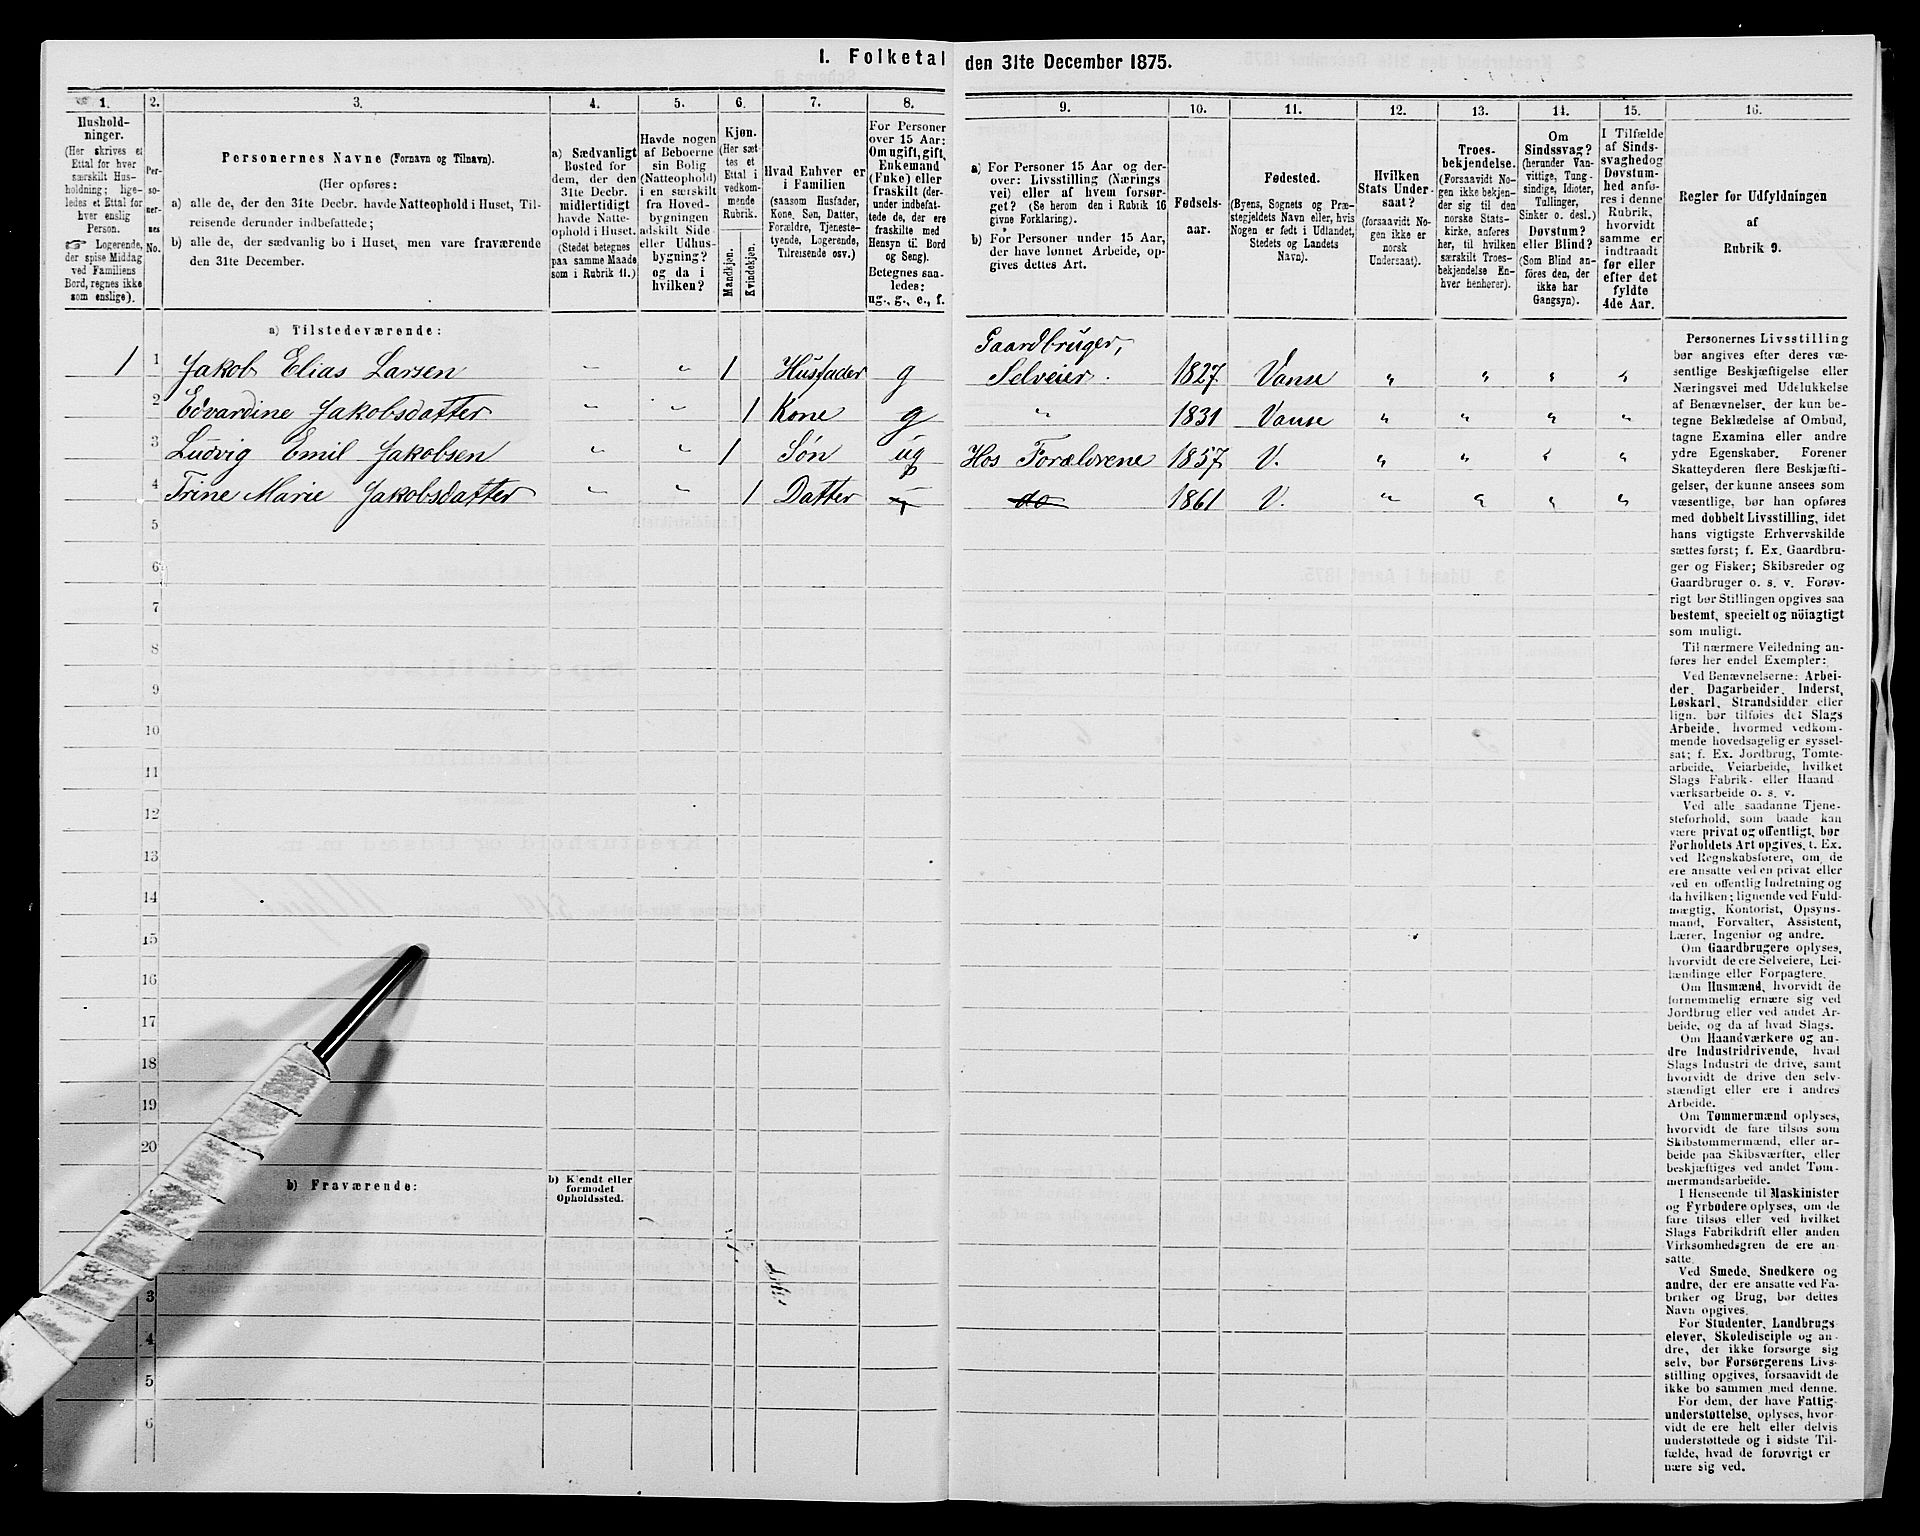 I. Folketal den 31te December 1875.
1.
Hushold-
ninger.
(Her skrives et
Ettal for hver
særskilt Hus-
holdning; lige-
ledes et Ettal for
hver enslig
Person.
☞ Logerende,
der spise Middag
ved Familiens
Bord, regnes ikke
som enslige).
2.
Per-
so-
ner-
nes
No.
3.
Personernes Navne (Fornavn og Tilnavn).
(Her opføres:
a) alle de, der den 31te Decbr. havde Natteophold i Huset, Til-
reisende derunder indbefattede;
b) alle de, der sædvanlig bo i Huset, men vare fraværende
den 31te December.
4.
a) Sædvanligt
Bosted for
dem, der den
31te Decbr.
midlertidigt
havde Natte-
ophold i Huset.
(Stedet betegnes
paa samme Maade
som i Rubrik 11.)
5.
Havde nogen
af Beboerne
sin Bolig
(Natteophold)
i en særskilt
fra Hoved-
bygningen
adskilt Side
eller Udhus-
bygning?
og da i
hvilken?
6.
Kjøn.
(Her sæt-
tes et
Ettal i
vedkom-
mende
Rubrik.
Mandkjøn.
Kvindekjøn.
7.
Hvad Enhver er
i Familien
(saasom Husfader,
Kone, Søn, Datter,
Forældre, Tjeneste-
tyende, Logerende,
Tilreisende osv.)
8.
For Personer
over 15 Aar:
Om ugift, gift,
Enkemand
(Enke) eller
fraskilt (der-
under indbefat-
tede de, der ere
fraskilte med
Hensyn til Bord
og Seng).
Betegnes saa-
ledes:
ug., g., e., f.
9.
a) For Personer 15 Aar og der-
over: Livsstilling (Nærings
vei) eller af hvem forsør-
get? (Se herom den i Rubrik 16
givne Forklaring).
b) For Personer under 15 Aar,
der have lønnet Arbeide, op-
gives dettes Art.
10.
Fødsels-
aar.
11.
Fødested.
(Byens, Sognets og Præ-
stegjeldets Navn eller, hvis
Nogen er født i Udlandet,
Stedets og Landets
Navn).
12.
Hvilken
Stats Under-
saat?
(forsaavidt No-
gen ikke er
norsk
Undersaat).
13.
Troes-
bekjendelse.
(Forsaavidt No-
gen ikke bekjen-
der sig til den
norske Stats-
kirke, anføres
her, til hvilken
særskilt Troes-
bekjendelse En-
hver henhører).
14.
Om
Sindssvag?
(herunder Van-
vittige, Tung-
sindige, Idioter,
Tullinger,
Sinker o. desl.)
Døvstum?
eller Blind?
(Som Blind an-
føres den, der
ikke har
Gangsyn).
15.
I Tilfælde
af Sinds-
svaghed og
Døvstum-
hed anfø-
res i denne
Rubrik,
hvorvidt
samme er
indtraadt
før eller
efter det
fyldte
4de Aar.
16.
Regler for Udfyldningen
af
Rubrik 9.
a) Tilstedeværende:
1 1 Jakob Elias Larsen " " 1 Husfader g Gaardbruger, Selveier. 1827 Vanse " " " "
2 Edvardine Jakobsdatter " " 1 Kone g " 1831 Vanse " " " "
3 Ludvig Emil Jakobsen " " 1 Søn ug Hos Forældrene 1857 V. " " " "
4 Trine Marie Jakobsdatter " " 1 Datter do 1861 V. " " " "
5
6
7
8
9
10
11
12
13
14
15
16
17
18
19
20
b) Fraværende:
b) Kjendt eller
formodet
Opholdssted.
3
4
5
6
Personernes Livsstilling
bør angives efter deres væ-
sentlige Beskjæftigelse eller
Næringsvei med Udelukkelse
af Benævnelser, der kun be-
tegne Beklædelse af Ombud,
tagne Examina eller andre
ydre Egenskaber. Forener
Skatteyderen flere Beskjæfti-
gelser, der kunne ansees som
væsentlige, bør han opføres
med dobbelt Livsstilling, idet
hans vigtigste Erhvervskilde
sættes først; f. Ex. Gaardbru-
ger og Fisker; Skibsreder og
Gaardbruger o. s. v. Forøv-
rigt bør Stillingen opgives saa
bestemt, specielt og nöiagtigt
som muligt.
Til nærmere Veiledning an-
føres her endel Exempler:
Ved Benævnelserne: Arbei-
der, Dagarbeider, Inderst,
Løskarl, Strandsidder eller
lign. bør tilføies det Slags
Arbeide, hvormed vedkom-
mende hovedsagelig er syssel-
sat; f. Ex. Jordbrug, Tomte-
arbeide, Veiarbeide, hvilket
Slags Fabrik- eller Haand
værksarbeide o. s. v.
Ved alle saadanne Tjene-
steforhold, som baade kan
være privat og offentligt, bør
Forholdets Art opgives, f. Ex.
ved Regnskabsførere, om de
ere ansatte ved en privat eller
ved en offentlig Indretning og
da hvilken; lignende ved Fuld-
mægtig, Kontorist, Opsyns-
mand, Forvalter, Assistent,
Lærer, Ingeniør og andre.
Om Gaardbrugere oplyses,
hvorvidt de ere Selveiere, Lei-
lændinge eller Forpagtere.
Om Husmænd, hvorvidt de
fornemmelig ernære sig ved
Jordbrug eller ved andet Ar-
beide, og da af hvad Slags.
Om Haandværkere og an-
dre Industridrivende, hvad
Slags Industri de drive, samt
hvorvidt de drive den selv-
stændigt eller ere i andres
Arbeide.
Om Tømmermænd oplyses,
hvorvidt de fare tilsøs som
Skibstømmermænd, eller ar-
beide paa Skibsværfter, eller
beskjæftiges ved andet Tøm-
mermandsarbeide.
I Henseende til Maskinister
og Fyrbødere oplyses, om de
fare tilsøs eller ved hvilket
Slags Fabrikdrift eller anden
Virksomhedsgren de ere an-
satte.
Ved Smede, Snedkere og
andre, der ere ansatte ved Fa-
briker og Brug, bør dettes
Navn opgives.
For Studenter, Landbrugs
elever, Skoledisciple og an-
dre, der ikke forsørge sig
selv, bør Forsørgerens Livs-
stilling opgives, forsaavidt de
ikke bo sammen med denne.
For dem, der have Fattig
understøttelse, oplyses, hvor-
vidt de ere helt eller delvis
understøttede og i sidste Til-
fælde, hvad de forøvrigt er
nære sig ved.